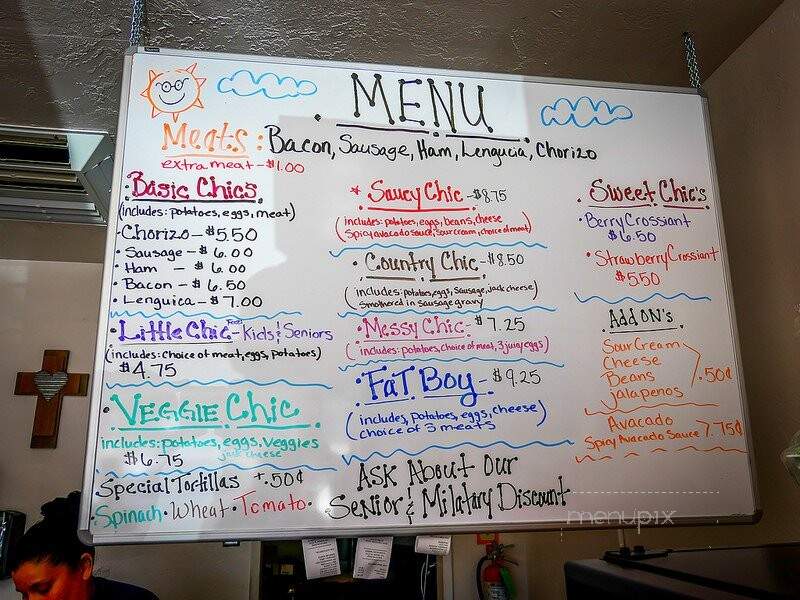 MENU
Meats: Bacon, Sausage, Ham, Lengucia, Chorizo
extra meat - $1.00
• Basic Chics
(includes: potatoes, eggs, meat)
• Chorizo - $5.50
• Sausage - $6.00
• Ham - $6.00
• Bacon - $6.50
• Lenguica - $7.00
• Little Chic - For Kids & Seniors
(includes: choice of meat, eggs, potatoes)
$4.75
• Veggie Chic
includes: potatoes, eggs, veggies
jack cheese
$6.75
Special Tortillas +.50¢
• Spinach • Wheat • Tomato •
* Saucy Chic - $8.75
(includes: potatoes, eggs, beans, cheese
Spicy avacado sauce, sour cream, choice of meat)
• Country Chic - $8.50
(includes: potatoes, eggs, sausage, jack cheese)
smothered in sausage gravy
• Messy Chic - $7.25
(includes: potatoes, choice of meat, 3 juicy eggs)
• Fat Boy - $9.25
(includes, potatoes, eggs, cheese)
choice of 3 meats
Ask About Our
Senior & Milatary Discount
• Sweet Chic's
• Berry Crossiant
$6.50
• Strawberry Crossiant
$5.50
Add On's
Sour Cream
Cheese
Beans
Jalapenos
.50¢
Avacado
Spicy Avacado Sauce
.75¢
menupix